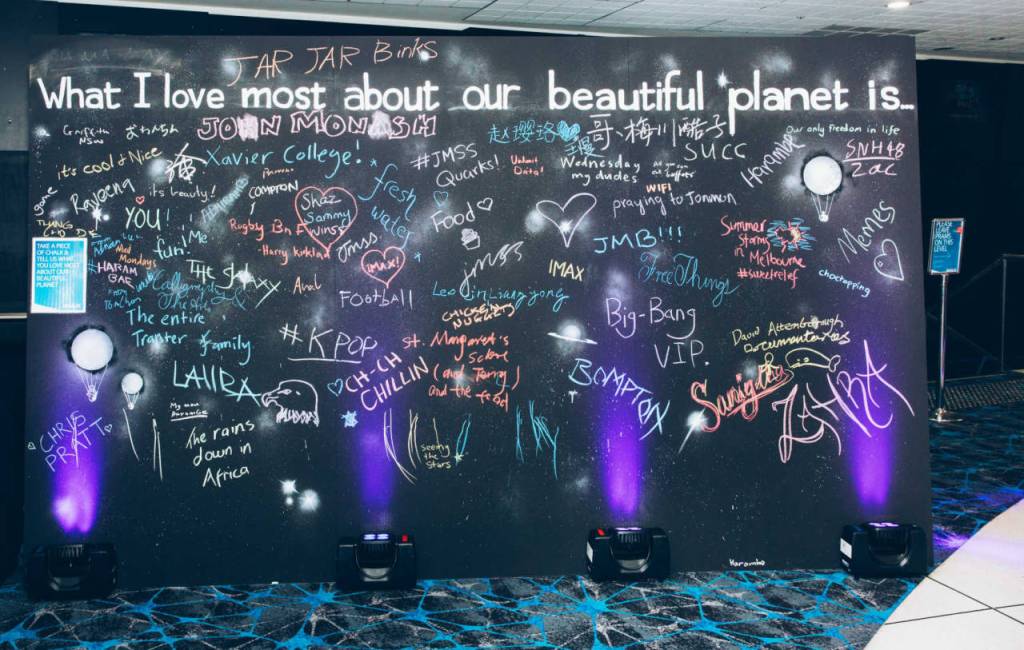 JAR JAR Binks
What I love most about our beautiful planet is...
JOHN MONASH
Griffith
NSW
it's cool & Nice
Xavier College!
#JMSS
Quarks!
Unlimit
Data!
Wednesday
my dudes
SUCC
Harambe
Our only freedom in life
SNH48
Zac
it's beauty!
YOU!
COMPTON
Shaz
Sammy
Wins
fresh
water
Food
WIFI
praying to Jonmon
Rugby
Harry Kirklad
Jmss
IMAX!
jmss
JMB!!!
IMAX
Summer
storms
in Melbourne
#sweetrelief
Memes
choctopping
TAKE A PIECE
OF CHALK &
TELL US WHAT
YOU LOVE MOST
ABOUT OUR
BEAUTIFUL
PLANET
Me
fun!
Mad
Mondays
#HARAM
BAE
THE
Shaxx
Aval
Football
Leo Jin Liang jong
Free Things
The entire
Tranter family
#KPOP
CHICKEN
NUGGETS
St. Margaret's
School
(and Jenny)
and the food
Big-Bang
VIP.
David Attenborough
Documentaries
LAIIRA
CH-CH
CHILLIN
BOMPTON
ZAHRA
CHRIS
PRATT
The rains
down in
Africa
Seeing
the
Stars
Harambe
PLEASE
LEAVE
PRAMS
ON THIS
LEVEL